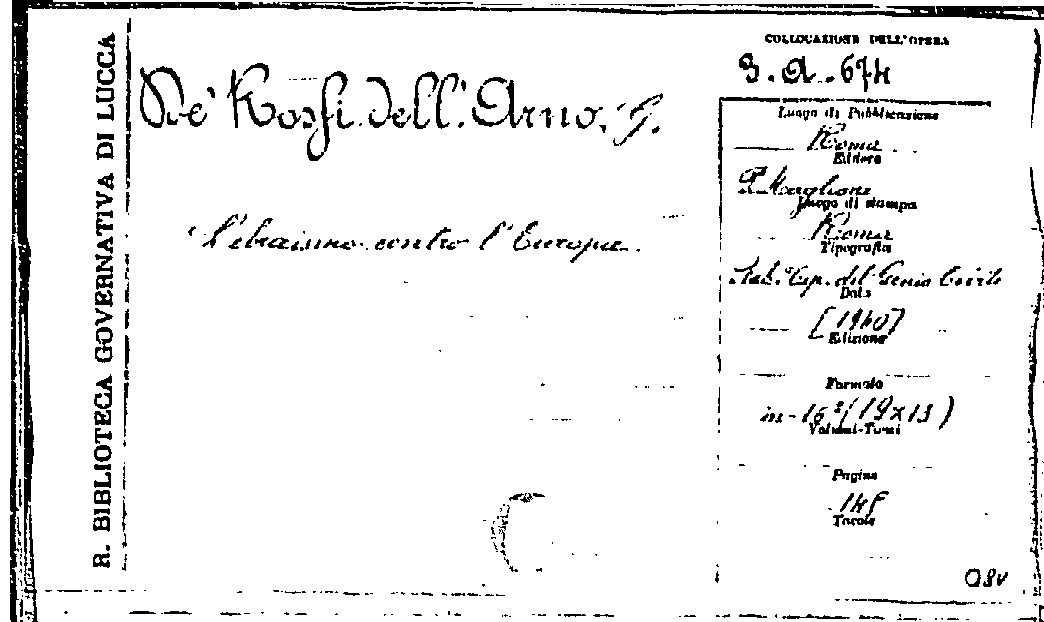 R. BIBLIOTECA GOVERNATIVA DI LUCCA
De' Rossi dell'Arno, G.
L'ebraismo contro l'Europa.
COLLOCAZIONE DELL'OPERA
Luogo di Pubblicazione
Roma
Editore
P. Maglione
Luogo di stampa
Roma
Tipografia
Stab. Tip. del Genio Civile
Data
[1940]
Edizione
Formato
in-16° (19x13)
Volumi-Tomi
Pagine
Tavole